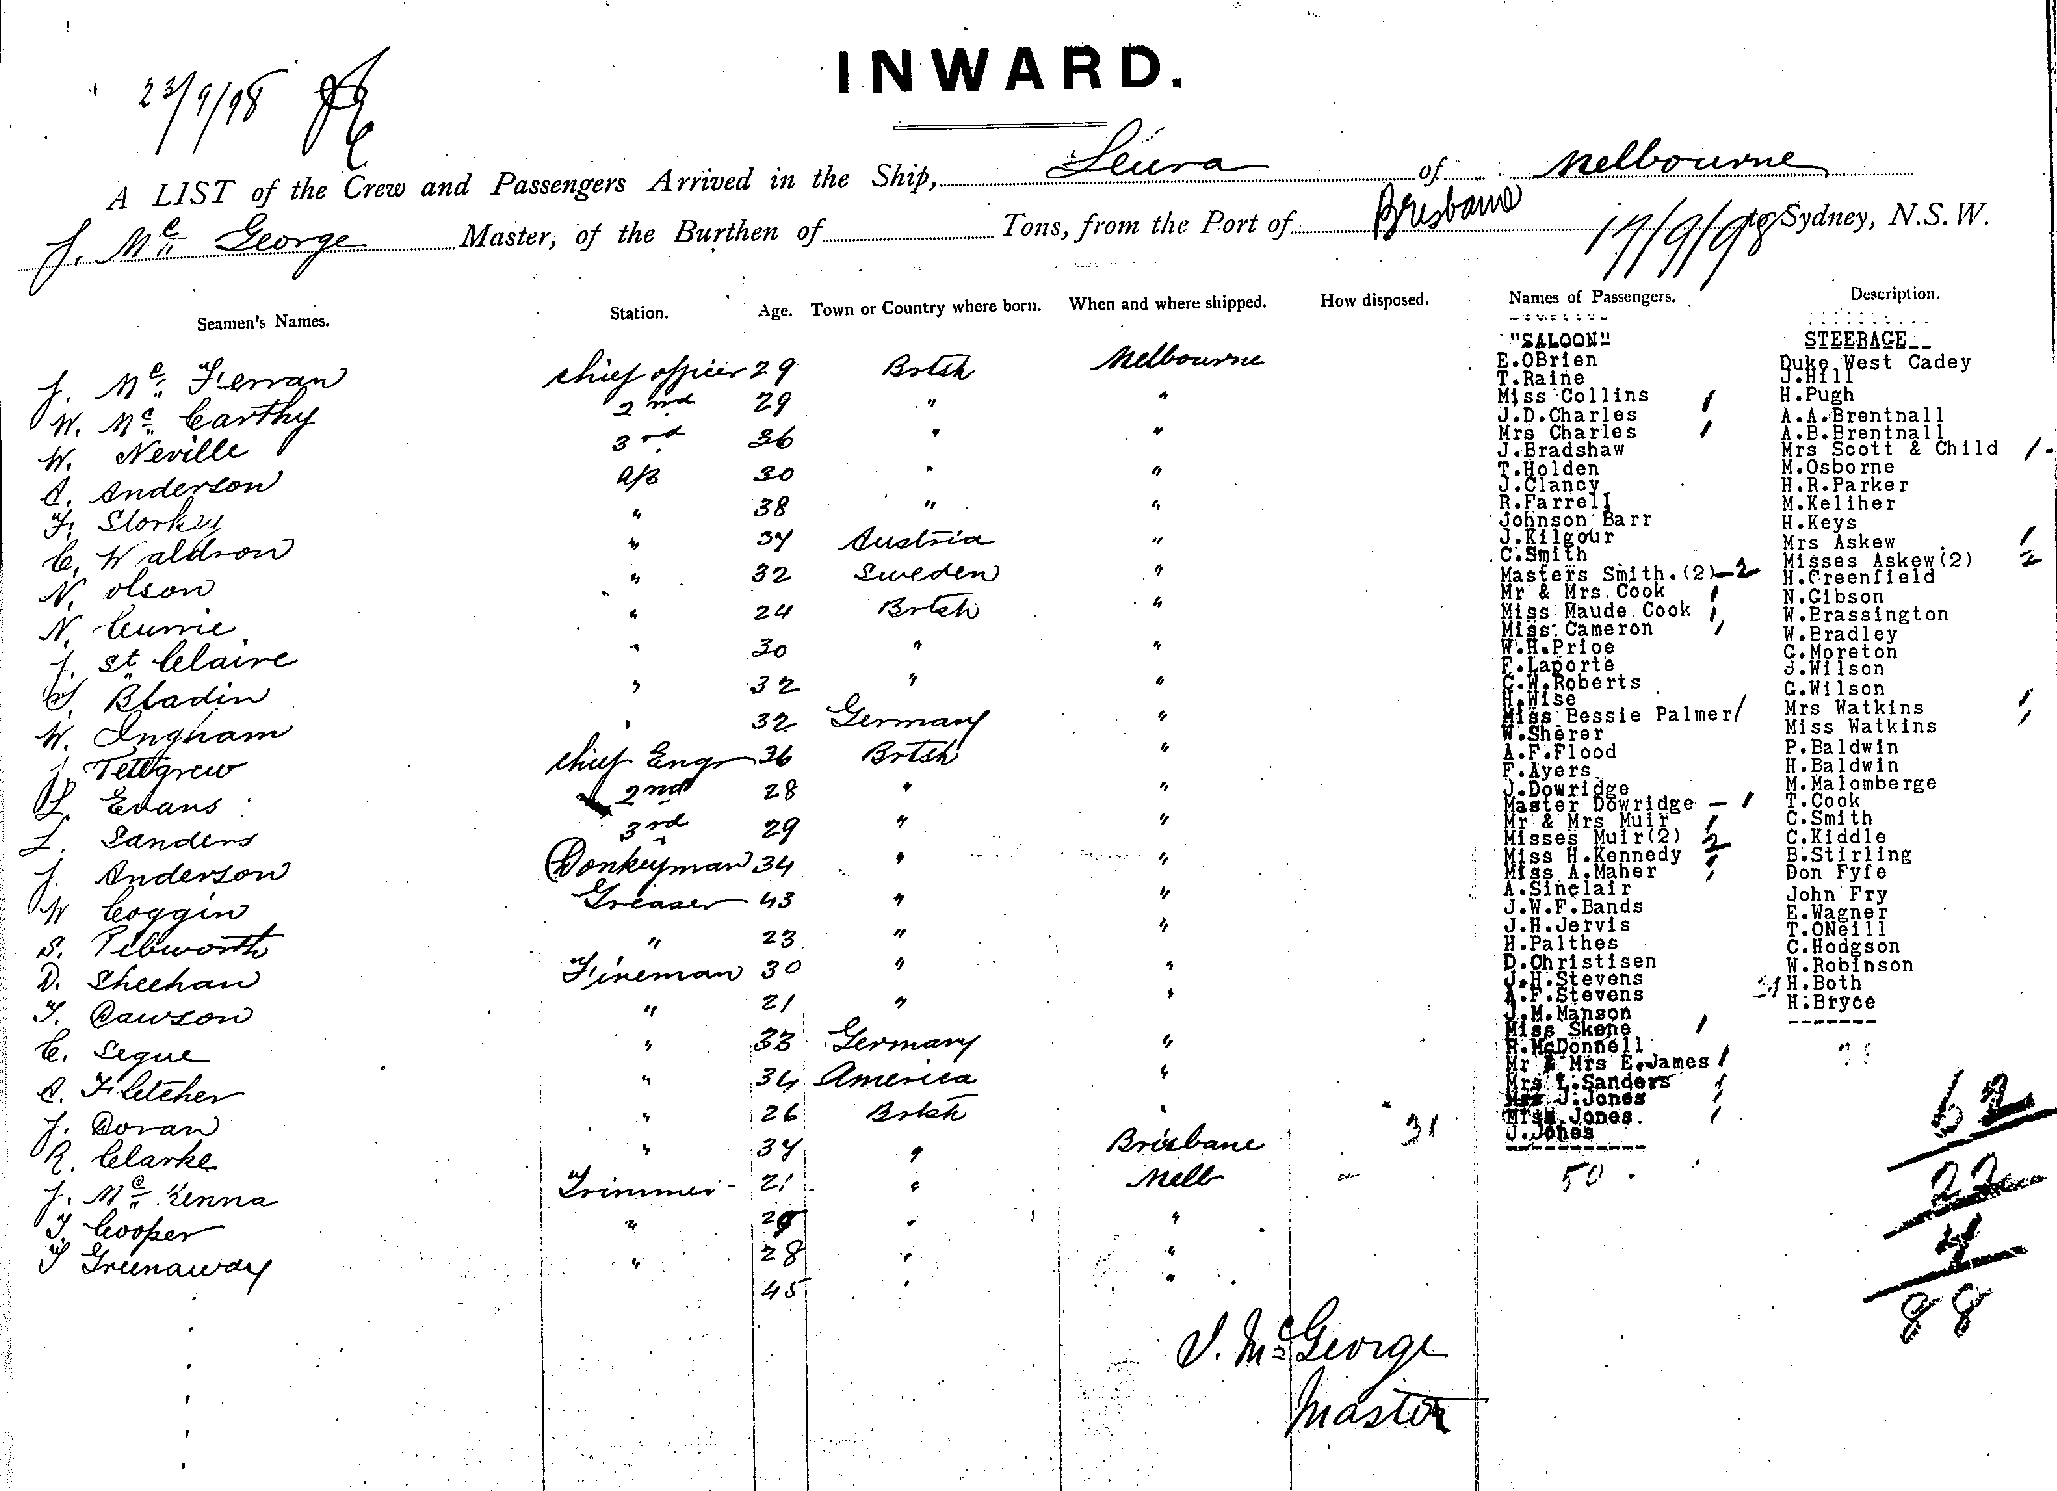 INWARD.
23/9/98
A LIST of the Crew and Passengers Arrived in the Ship, Leura of Melbourne
J. McGeorge Master, of the Burthen of Tons, from the Port of Brisbane to Sydney, N.S.W.
17/9/98
Seamen's Names. Station. Age. Town or Country where born. When and where shipped. How disposed. Names of Passengers. Description.
J. Mc Ferran chief officer 29 Brtsh Melbourne
W. Mc Carthy 2nd 29 " "
W. Neville 3rd 36 " "
A. Anderson A/B 30 " "
F. Storkey " 38 " "
C. Waldron " 37 Austria "
N. Olson " 32 Sweden "
N. Currie " 24 Brtsh "
J. St Claire " 30 " "
S. Bladin " 32 " "
W. Ingham " 32 Germany "
J. Tetigrew chief Engr 36 Brtsh "
L. Evans 2nd 28 " "
L. Sanders 3rd 29 " "
J. Anderson Donkeyman 34 " "
W Coggin Greaser 43 " "
S. Pebworth " 23 " "
D. Sheehan Fireman 30 " "
T. Dawson " 21 " "
C. Segue " 33 Germany "
A. Fletcher " 34 America "
J. Doran " 26 Brtsh "
R. Clarke " 37 " Brisbane
J. Mc Kenna Trimmer 21 " Mell
T. Cooper " " "
T Greenaway " 28 " "
45 " "
J. McGeorge
Master
"SALOON"
E.OBrien
T.Raine
Miss Collins 1
J.D.Charles
Mrs Charles 1
J.Bradshaw
T.Holden
J.Clancy
R.Farrell
Johnson Barr
J.Kilgour
C.Smith
Masters Smith.(2) — 2
Mr & Mrs Cook 1
Miss Maude Cook 1
Miss Cameron 1
W.H.Price
F.Laporte
C.W.Roberts
H.Wise
Miss Bessie Palmer 1
W.Sherer
A.F.Flood
F.Ayers
J.Dowridge
Master Dowridge — 1
Mr & Mrs Muir 1
Misses Muir(2) 2
Miss H.Kennedy 1
Miss A.Maher 1
A.Sinclair
J.W.F.Bands
J.H.Jervis
H.Palthes
D.Christisen
J.H.Stevens
A.F.Stevens
J.M.Manson
Miss Skene 1
R.McDonnell
Mr & Mrs E.James 1
Mrs L.Sanders 1
Mrs J.Jones 1
Miss Jones 1
J.Jones
31
50
STEERAGE
Duke West Cadey
J.Hill
H.Pugh
A.A.Brentnall
A.B.Brentnall
Mrs Scott & Child 1
M.Osborne
H.R.Parker
M.Keliher
H.Keys
Mrs Askew 1
Misses Askew(2) 2
H.Greenfield
N.Gibson
W.Brassington
W.Bradley
G.Moreton
J.Wilson
G.Wilson
Mrs Watkins 1
Miss Watkins 1
P.Baldwin
H.Baldwin
M.Malomberge
T.Cook
C.Smith
C.Kiddle
E.Stirling
Don Fyfe
John Fry
E.Wagner
T.ONeill
C.Hodgson
W.Robinson
H.Both
H.Bryce
62
22
4
88